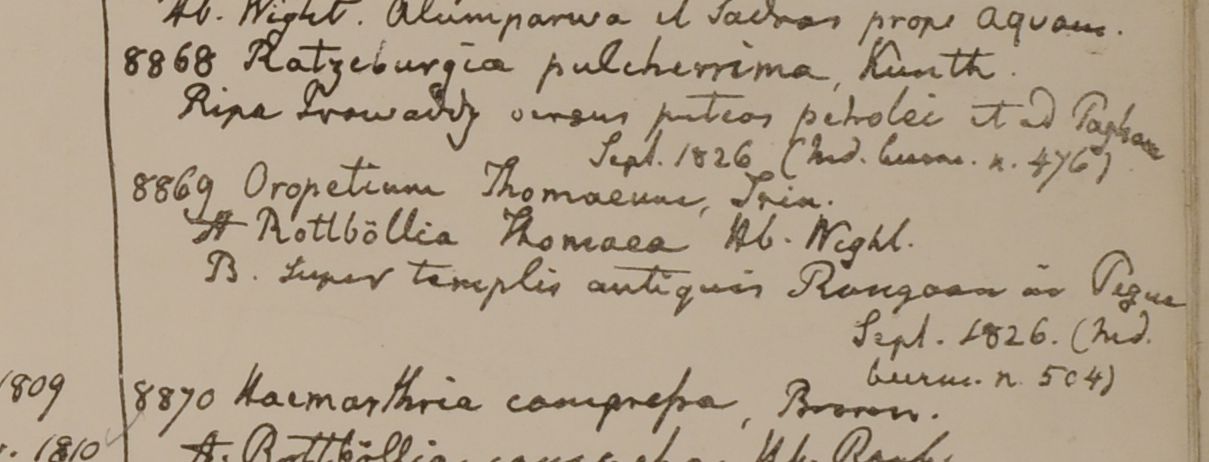 Hb. Wight. Alumparwa et Sadras prope aquam.
8868 Ratzeburgia pulcherrima, Kunth.
Ripa Irawaddy versus puteos petrolei et ad Pagham
Sept. 1826 (hd. burm. n. 476)
8869 Oropetium Thomaeum, Trin.
A Rottböllia Thomaea Hb. Wight.
B. super templis antiquis Rangoon in Pegue
Sept. 1826. (hd.
burm. n. 504)
1809 8870 Haemarthria compressa, Brown.
1810 A. Rottböllia Hb. Roxb.